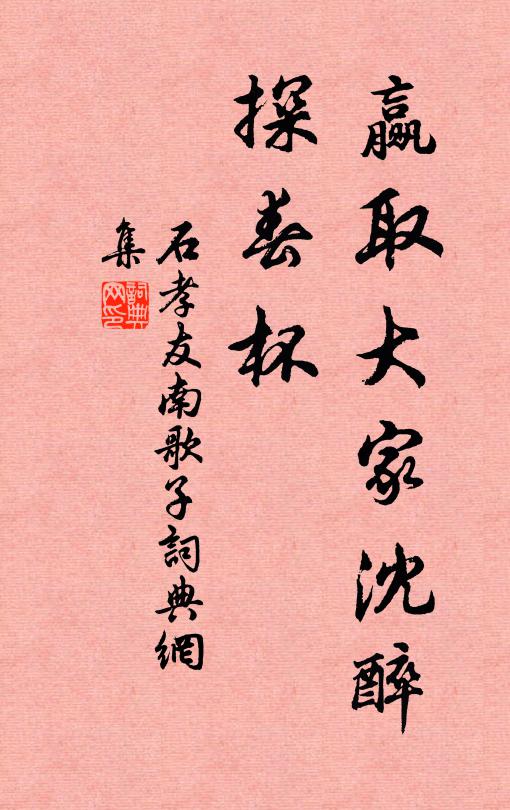 贏取大家沈醉
探春杯
石孝友南歌子詞典網
集
詞典
网印